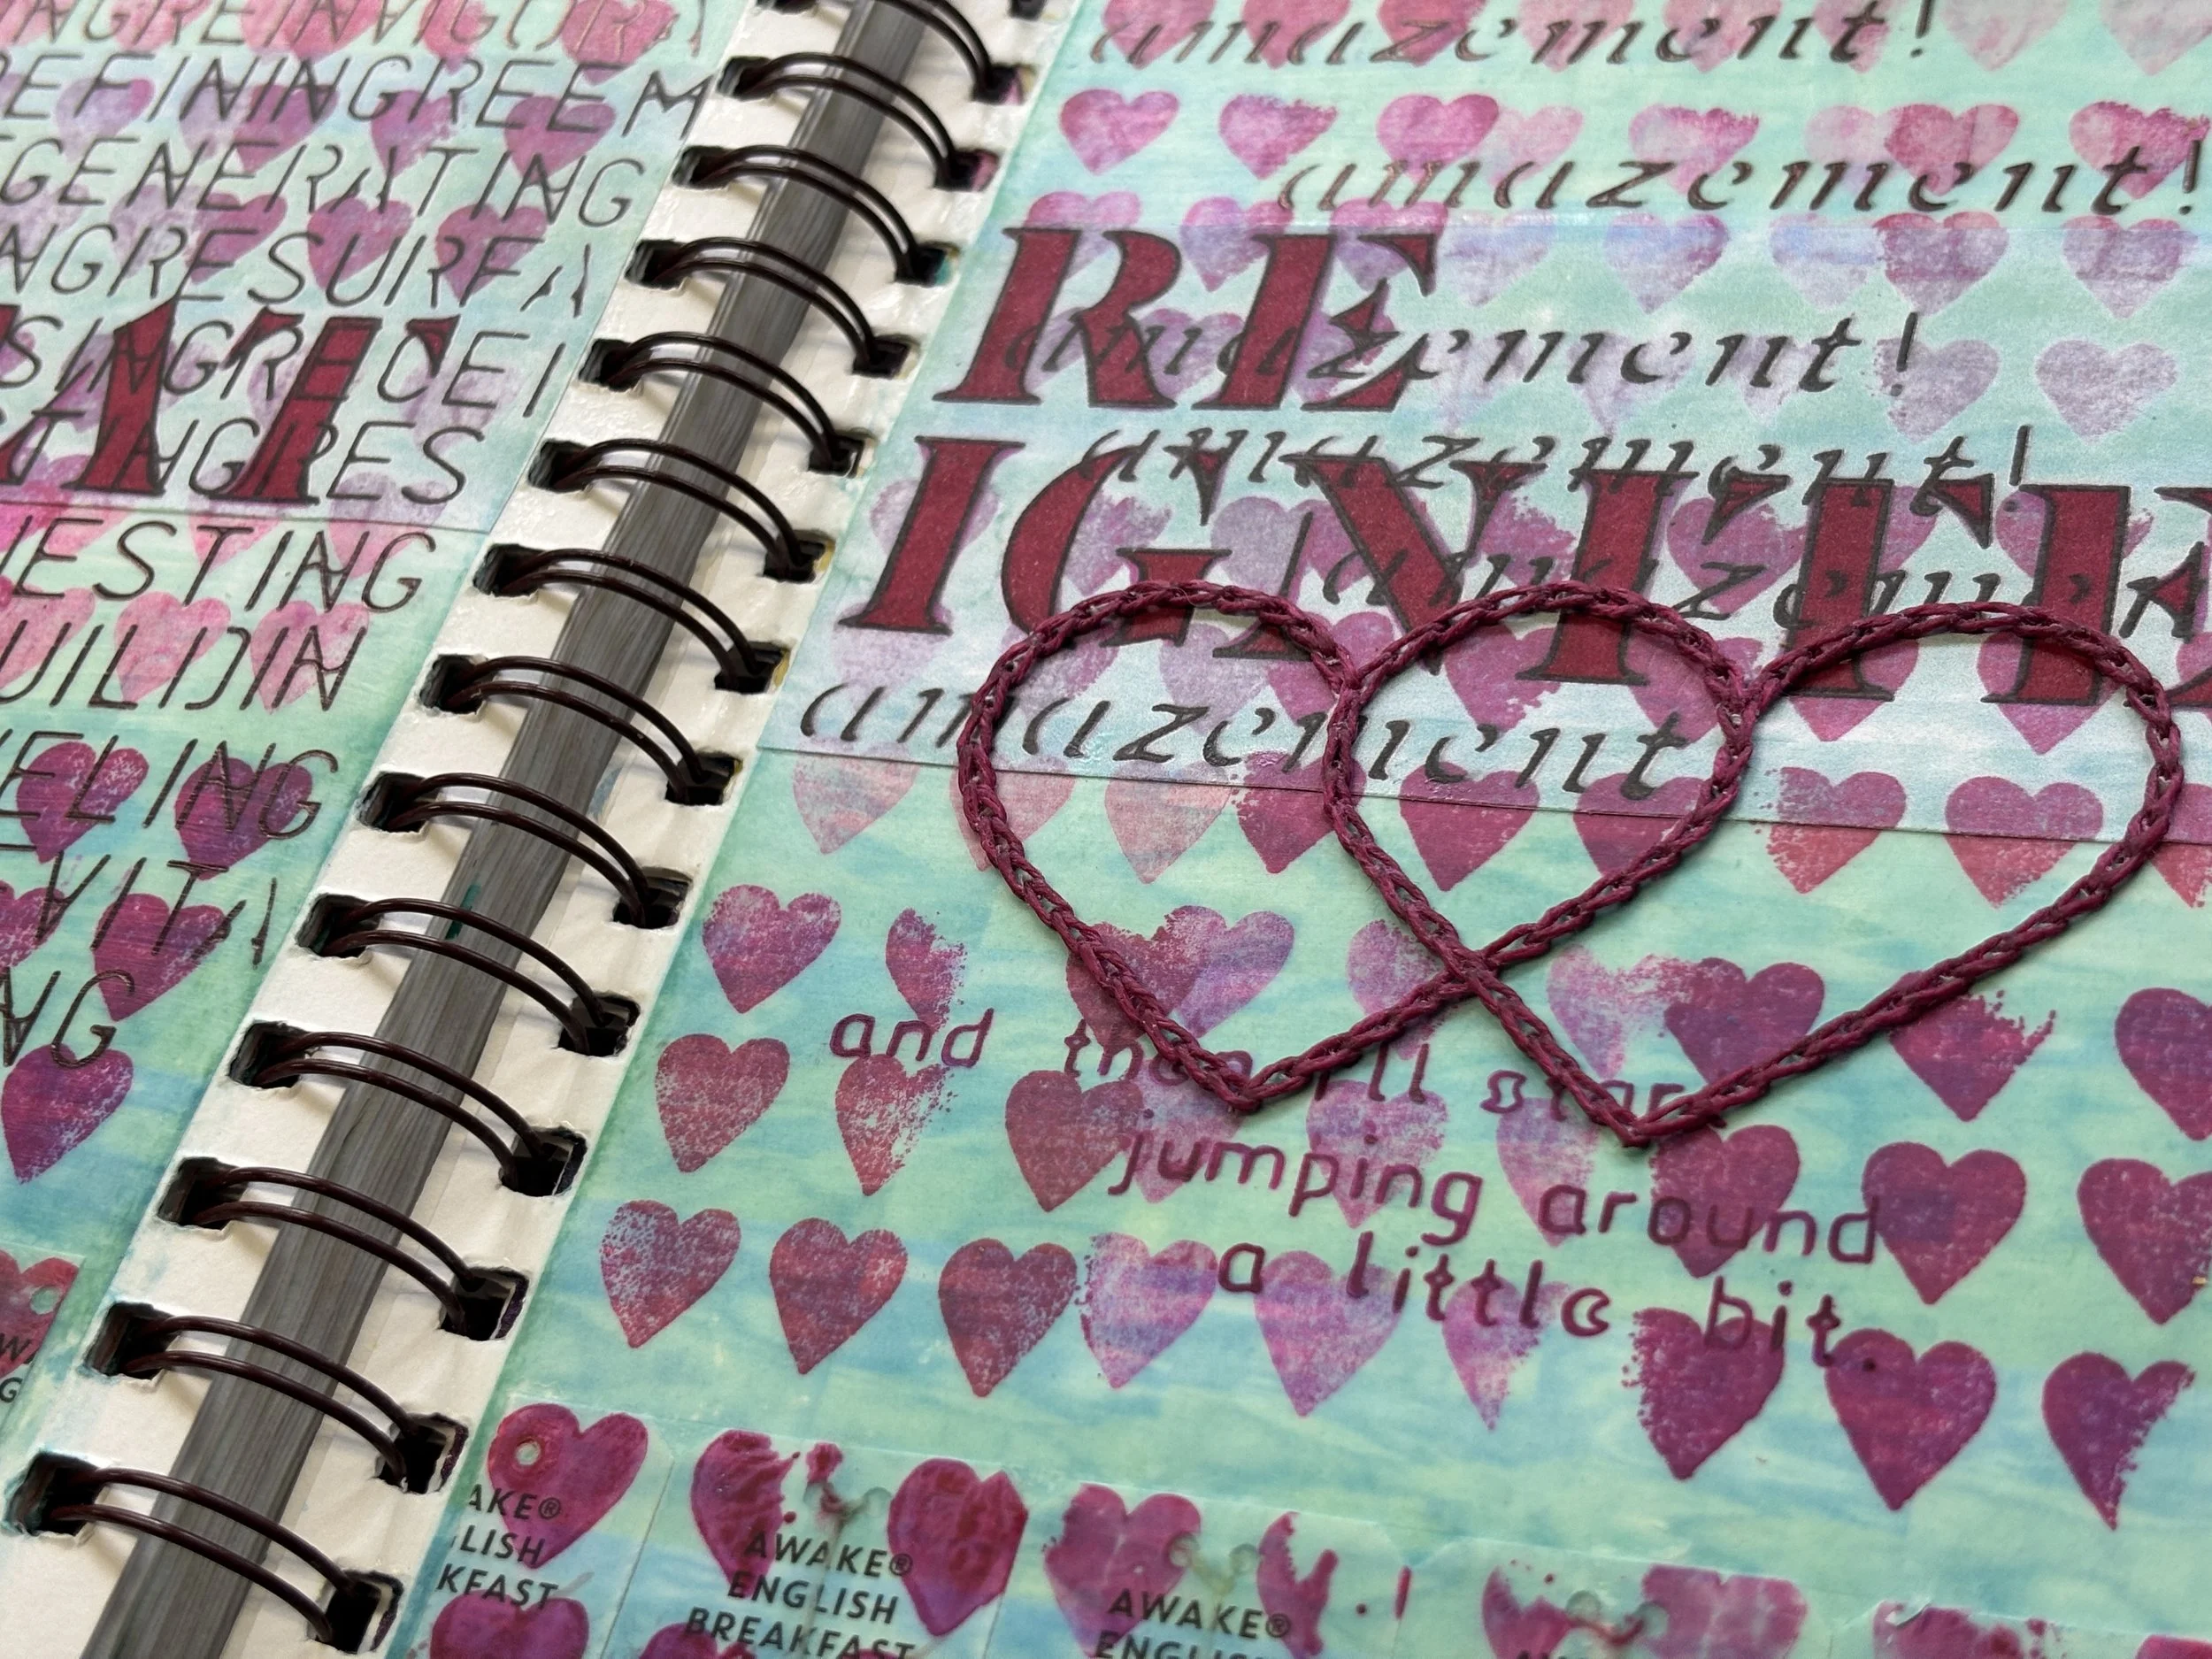 NGREINVIGORA
EFININGREEM
GENERATING
NGRESURFA
SINGRECEI
STINGRES
ESTING
UILDIN
ELING
EVITA
NG
amazement!
amazement!
RE
amazement!
amazement!
IGNITE
amazemen
amazement
and then I'll star
jumping around
a little bit.
AKE®
LISH
KFAST
AWAKE®
ENGLISH
BREAKFAST
AWAKE®
ENGLISH